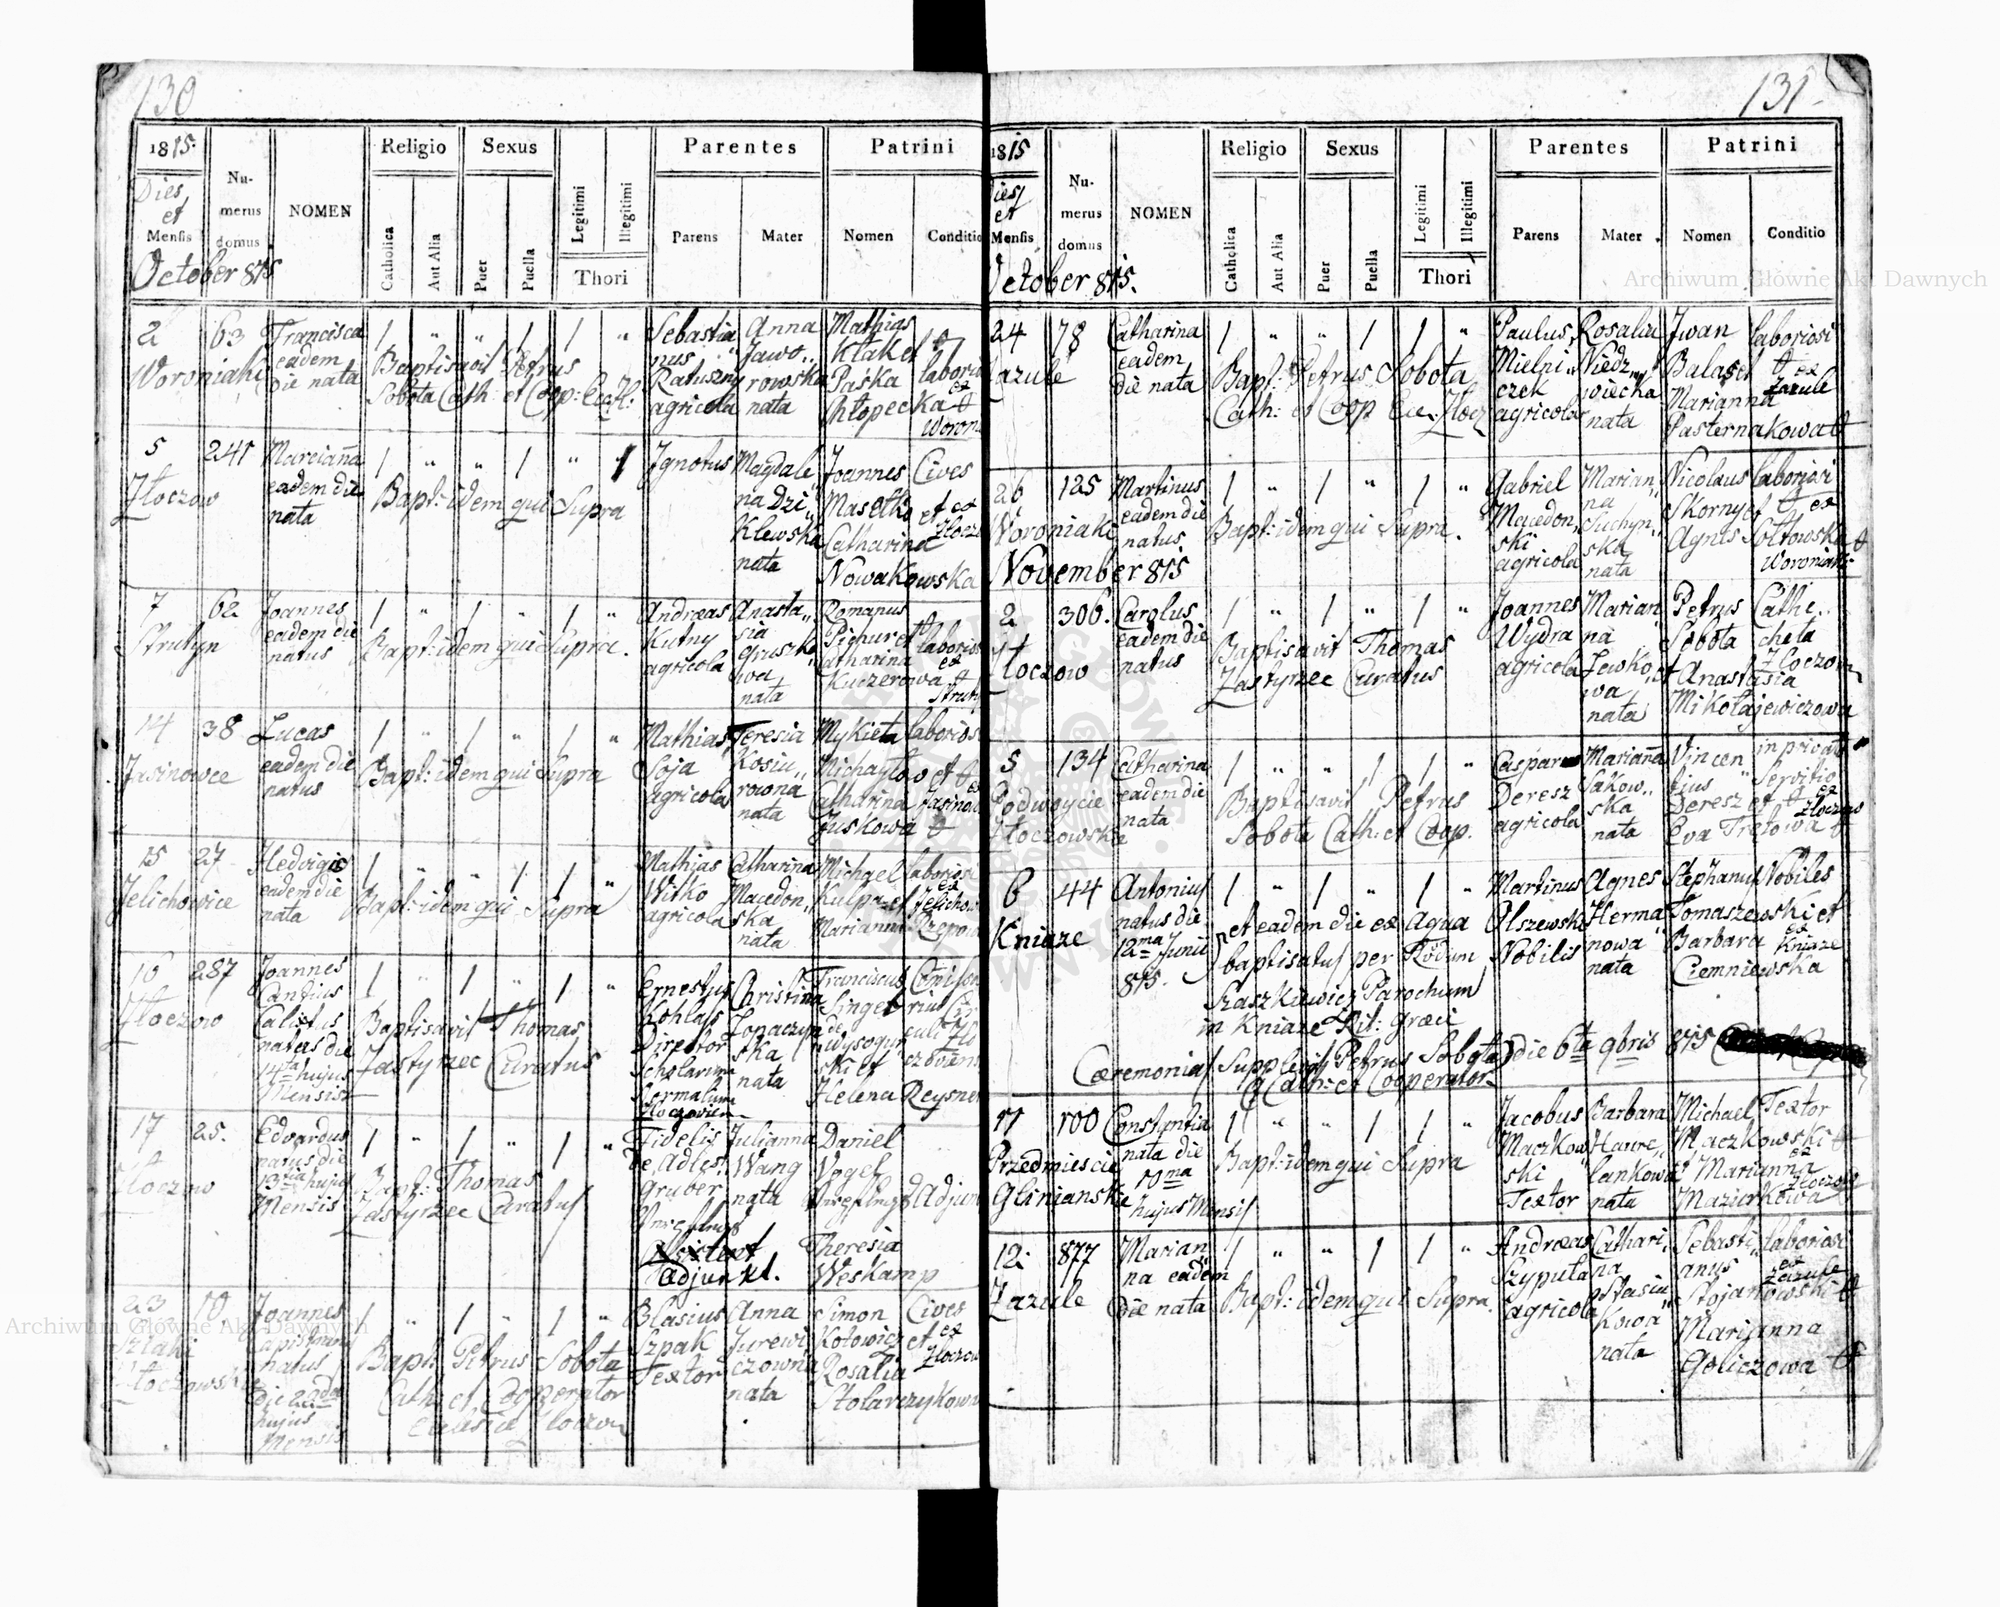 130
1815.
Dies
et
Mensis
October 815
Nu-
merus
domus
NOMEN
Religio
Catholica
Aut Alia
Sexus
Puer
Puella
Legitimi
Illegitimi
Thori
Parentes
Parens
Mater
Patrini
Nomen
Conditio
2
Woroniaki
63
Francisca
eadem
die nata
1 " " 1 1 "
Baptisavit Petrus
Sobota Cath: et Coop:
Sebastia
nus
Ratuszny
agricola
Anna
Jawo,,
rowska
nata
Mathias
Kłak et
Paśka
Chłopecka
5
Złoczow
241
Marcianna
eadem die
nata
1 " " 1 " 1
Bapt: idem qui Supra
Ignotus
Magdale
na Dzi,,
Klewska
nata
Joannes
Masełko
Catharina
Nowakowska
Cives
et ex
7
Strutyn
62
Joannes
eadem die
natus
1 " 1 " 1 "
Bapt: idem qui Supra.
Andræas
Kutny
agricola
Anasta,,
sia
Gruszko
wa
nata
Romanus
Pichur et
Catharina
Kuczerowa
14
Jasinowce
38
Lucas
eadem die
natus
1 " 1 " 1 "
Bapt: idem qui Supra
Mathias
Soja
agricola
Teresia
Kosiu,,
rowna
nata
Mykieta
Michayłow et
Catharina
Juskowa
15
Jelichowice
27
Hedvigis
eadem die
nata
1 " " 1 1 "
Bapt: idem qui Supra
Mathias
Witko
agricola
Catharina
Macedon,,
ska
nata
Michael
Kulpa et
Marianna
16
Złoczow
287
Joannes
Cantius
Calistus
natus die
14ta hujus
Mensis
1 " 1 " 1 "
Baptisavit Thomas
Zastyrzec Curatus
Ernestus
Kohlass
Director
Scholarum
Normalium
Christina
Lonaczyn
ska
nata
Franciscus
Singer
de
Wysogur
ski et
Helena Reysner
17
Złoczow
25.
Edvardus
natus die
13tia hujus
Mensis
1 " 1 " 1 "
Bapt: Thomas
Zastyrzec Curatus
Fidelis
de Adles
Gruber
Adjunkt.
Julianna
Wang
nata
Daniel
Vogel
Theresia
Weskamp
23
Szlaki
10
Joannes
natus
die 22da
hujus
Mensis
1 " 1 " 1 "
Bapt: Petrus Sobota
Cath: et Cooperator
Blasius
Szpak
Textor
Anna
Jurewi
czowna
nata
Simon
Kotowicz et
Rosalia
Stolarczykowna
Cives
ex
131
1815
Dies
et
Mensis
October 815.
Nu-
merus
domus
NOMEN
Religio
Catholica
Aut Alia
Sexus
Puer
Puella
Legitimi
Illegitimi
Thori
Parentes
Parens
Mater
Patrini
Nomen
Conditio
24
Zazule
78
Catharina
eadem
die nata
1 " " 1 1 "
Bapt: Petrus Sobota
Cath: et Coop
Paulus
Mielni,,
czek
agricola
Rosalia
Niedz,,
wiecka
nata
Jwan
Balas et
Marianna
Pasternakowa
laboriosi
ex
Zazule
26
Woroniaki
125
Martinus
eadem die
natus
1 " 1 " 1 "
Bapt: idem qui Supra.
Gabriel
Macedon,,
ski
agricola
Marian,,
na
Suchyn,,
ska
nata
Nicolaus
Skorny et
Agnes Sołtowska
laboriosi
ex
Woroniaki
November 815
2
Złoczow
306.
Carolus
eadem die
natus
1 " 1 " 1 "
Baptisavit Thomas
Zastyrzec Curatus
Joannes
Wydra
agricola
Marian,,
na
Lewko,,
wa
nata
Petrus
Sobota
et Anastasia
Mikołajewiczowa
Cathe,,
cheta
Złoczow
5
Podwoycie
Złoczowskie
134
Catharina
eadem die
nata
1 " " 1 1 "
Baptisavit Petrus
Sobota Cath: et Coop.
Casparus
Deresz
agricola
Marianna
Sakow,,
ska
nata
Vincen
tius
Deresz et
Eva Tretowa
in privato
Servitio
ex
6
Kniaze
44
Antonius
natus die
12ma Junii
815.
1 " 1 " 1 "
et eadem die ex Aqua
baptisatus per Rdum
Szaszkiewicz Parochum
in Kniaze Rit: Græci
Cæremonias Supplevit Petrus Sobota die 6ta 9bris 815
Cath: et Cooperator.
Martinus
Olszewski
Nobilis
Agnes
Herma
nowa
nata
Stephanus
Tomaszewski et
Barbara
Ciemniewska
Nobiles
ex
Kniaze
11
Przedmiescie
Glinianskie
100
Constantia
nata die
10ma
hujus Mensis
1 " " 1 1 "
Bapt: idem qui Supra
Jacobus
Maczkow
ski
Textor
Barbara
Hawre,,
lankowa
nata
Michael
Maczkowski
et Marianna
Mazurkowa
Textor
ex
Złoczow
12.
Zazule
877
Marian,,
na eadem
die nata
1 " " 1 1 "
Bapt: idem qui Supra.
Andræas
Szypuła
agricola
Cathari,,
na
Stasiu,,
kowa
nata
Sebasti,,
anus
Stojanowski
Marijanna
Goliczowa
laboriosi
ex
Zazule